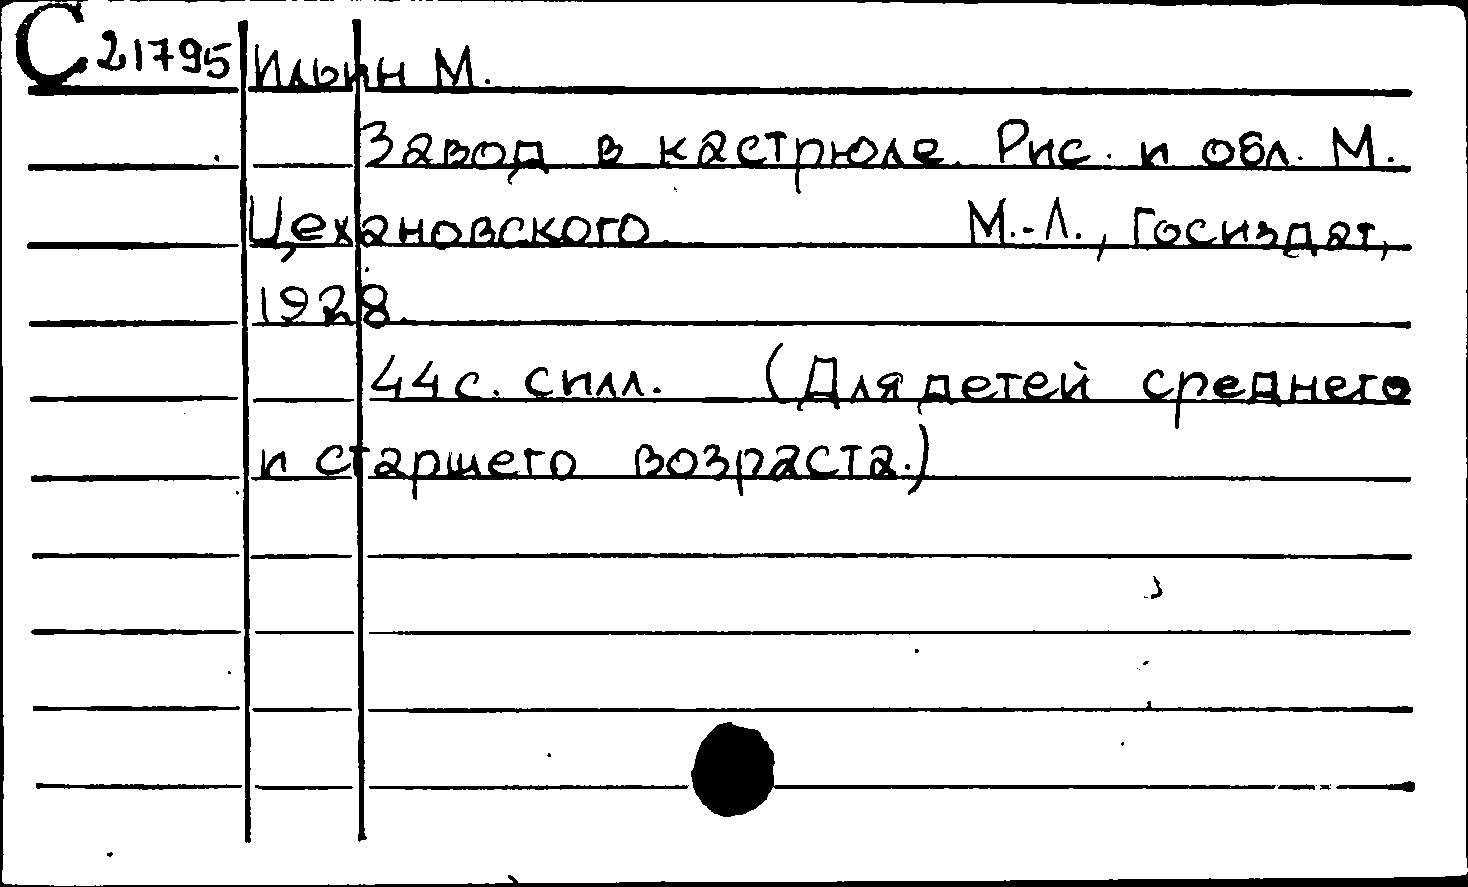 С 21795 Ильин М.
Завод в кастрюле. Рис. и обл. М.
Цехановского. М.-Л., Госиздат,
1928.
44 с. силл. (Для детей среднего
и старшего возраста.)